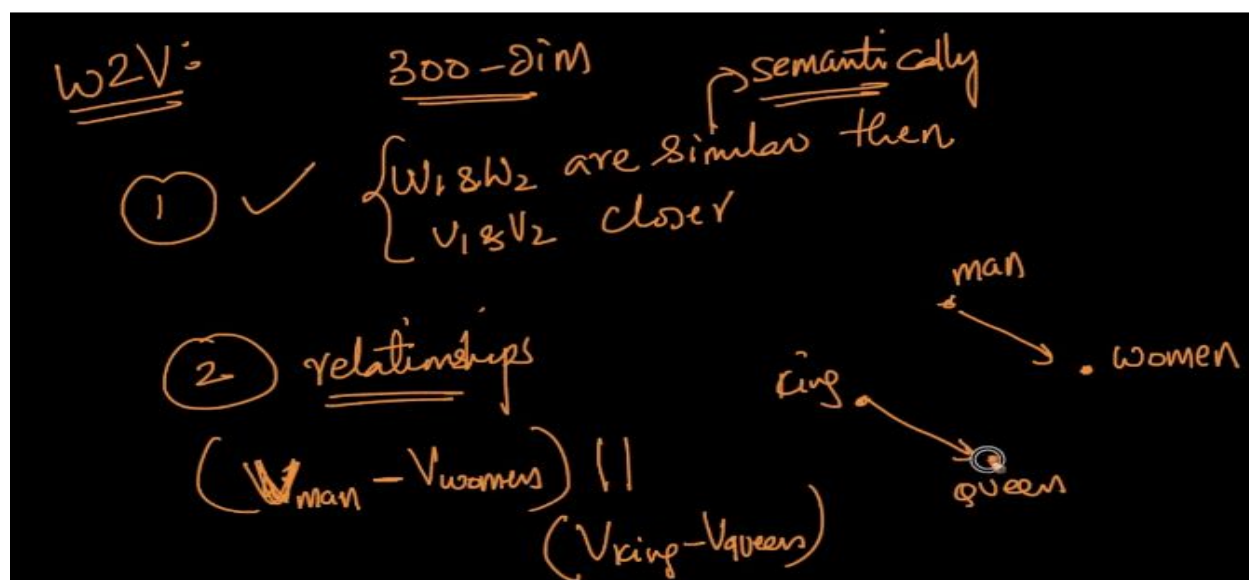 W2V: 300-dim semantically
1 ✓ { W₁ & W₂ are similar then
V₁ & V₂ closer
man
women
2 relationships
king
queen
(V man - V women) ||
(V king - V queen)